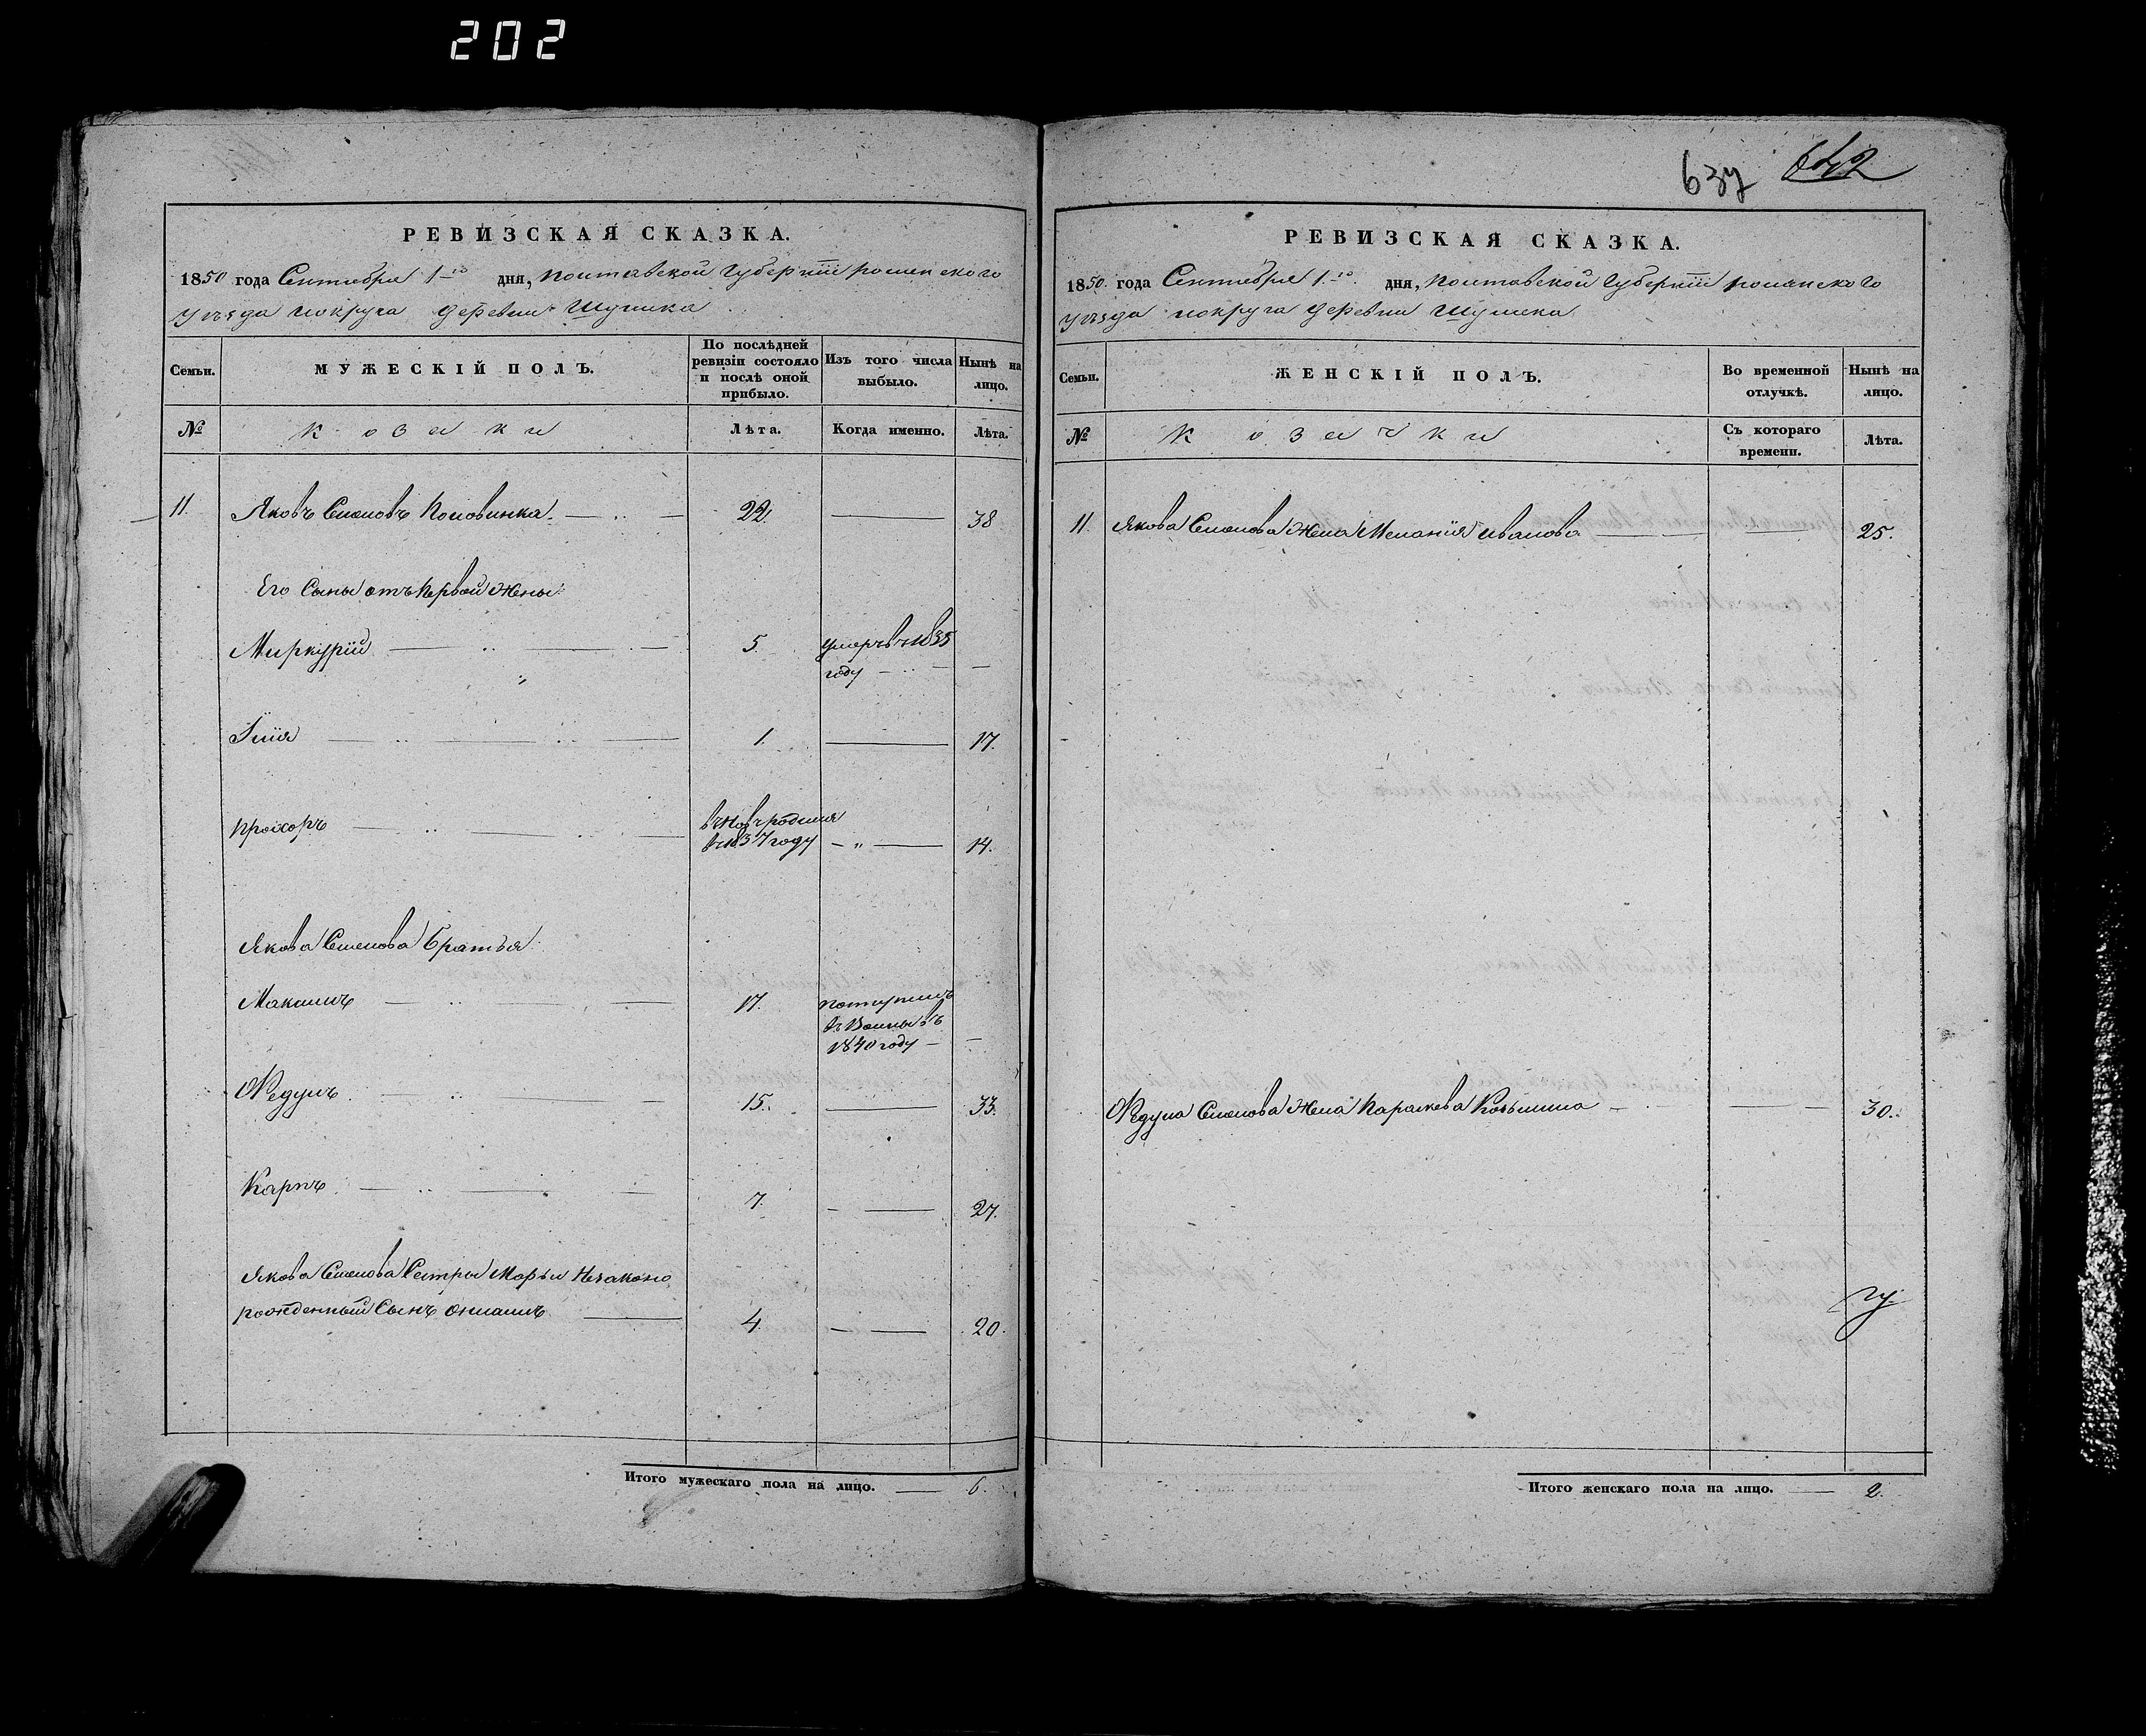 202
637 642
РЕВИЗСКАЯ СКАЗКА.
1850 года Сентября 1го дня, Полтавской Губернiи роменского
уѣзда покруга деревни Шумска
Семьи.
МУЖЕСКIЙ ПОЛЪ.
По послѣдней ревизiи состояло и послѣ оной прибыло.
Изъ того числа выбыло.
Нынѣ на лицо.
№
козаки
Лѣта.
Когда именно.
Лѣта.
11. Яковъ Семеновъ Половинка. 22. 38
Его Сыны отъ Первой Жены:
Миркурiй 5. умеръ въ 1835
году
Iлiя 1. 17.
Прохоръ въновь родился
въ 1837 году 14.
Якова Семенова Братья:
Максимъ 17. поступилъ
1840 году
Федулъ 15. 33.
Карпъ 7. 27.
Якова Семенова Сестры Марьи Незаконо
рожденный Сынъ 4. 20.
Итого мужескаго пола на лицо. 6.
РЕВИЗСКАЯ СКАЗКА.
1850 года Сентября 1го дня, Полтавской Губернiи роменского
уѣзда покруга деревни Шумска
Семьи.
ЖЕНСКIЙ ПОЛЪ.
Во временной отлучкѣ.
Нынѣ на лицо.
№
козачки
Съ котораго времени.
Лѣта.
11. Якова Семенова Жена Меланiя Иванова 25.
Федула Семенова Жена Параскева Козьмина 30.
Итого женскаго пола на лицо. 2.